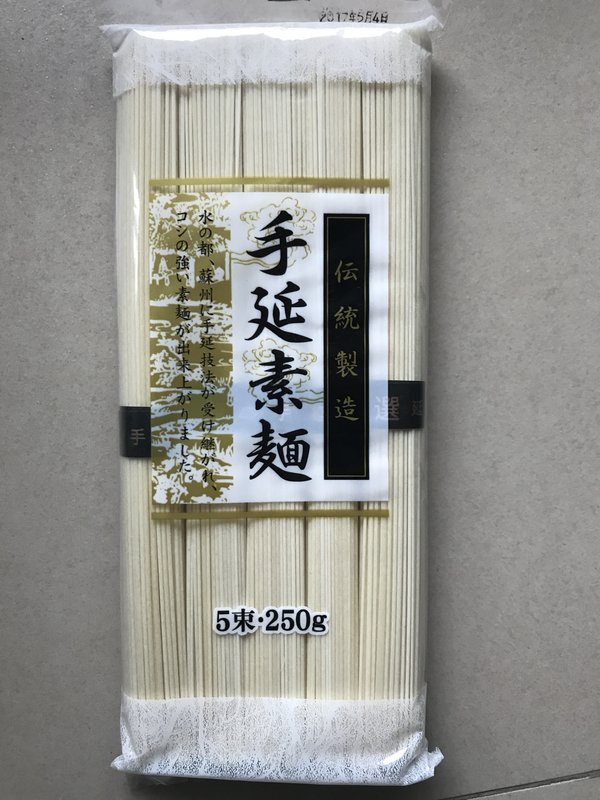 2017年5月4日
伝統製造
手延素麺
水の都、蘇州に手延技法が受け継がれ、
コシの強い素麺が出来上がりました。
手
選
延
5束・250g